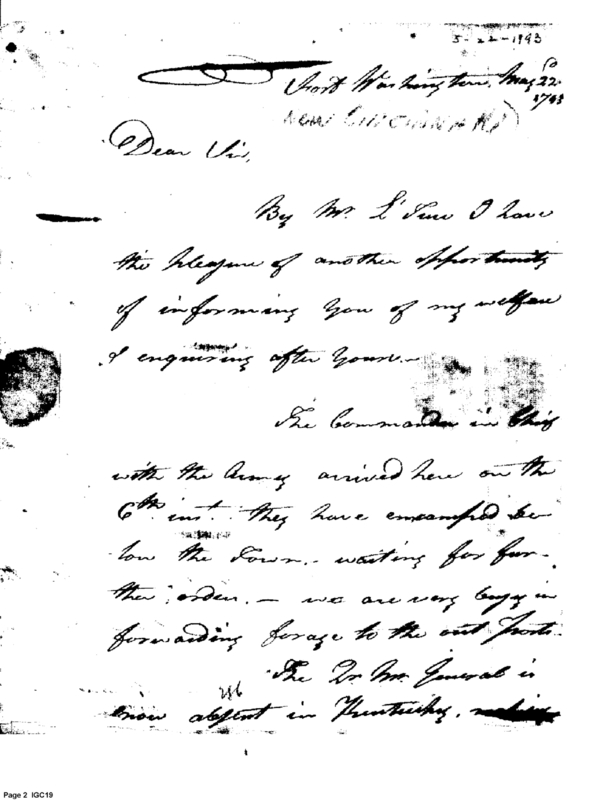 5-22-1793
Fort Washington, May 22d
1793
NOW CINCINNATI)
Dear Sir,
By Mr. I have
the pleasure of another opportunity
of informing you of my welfare
& enquiring after yours.—
The Commander in Chief
with the Army arrived here on the
6th inst. they have encamped be
low the Town. - waiting for fur-
ther orders. — we are very busy in
forwarding forage to the out posts.
The Qr. Mr. General is
now absent in Kentucky,
Page 2 IGC19